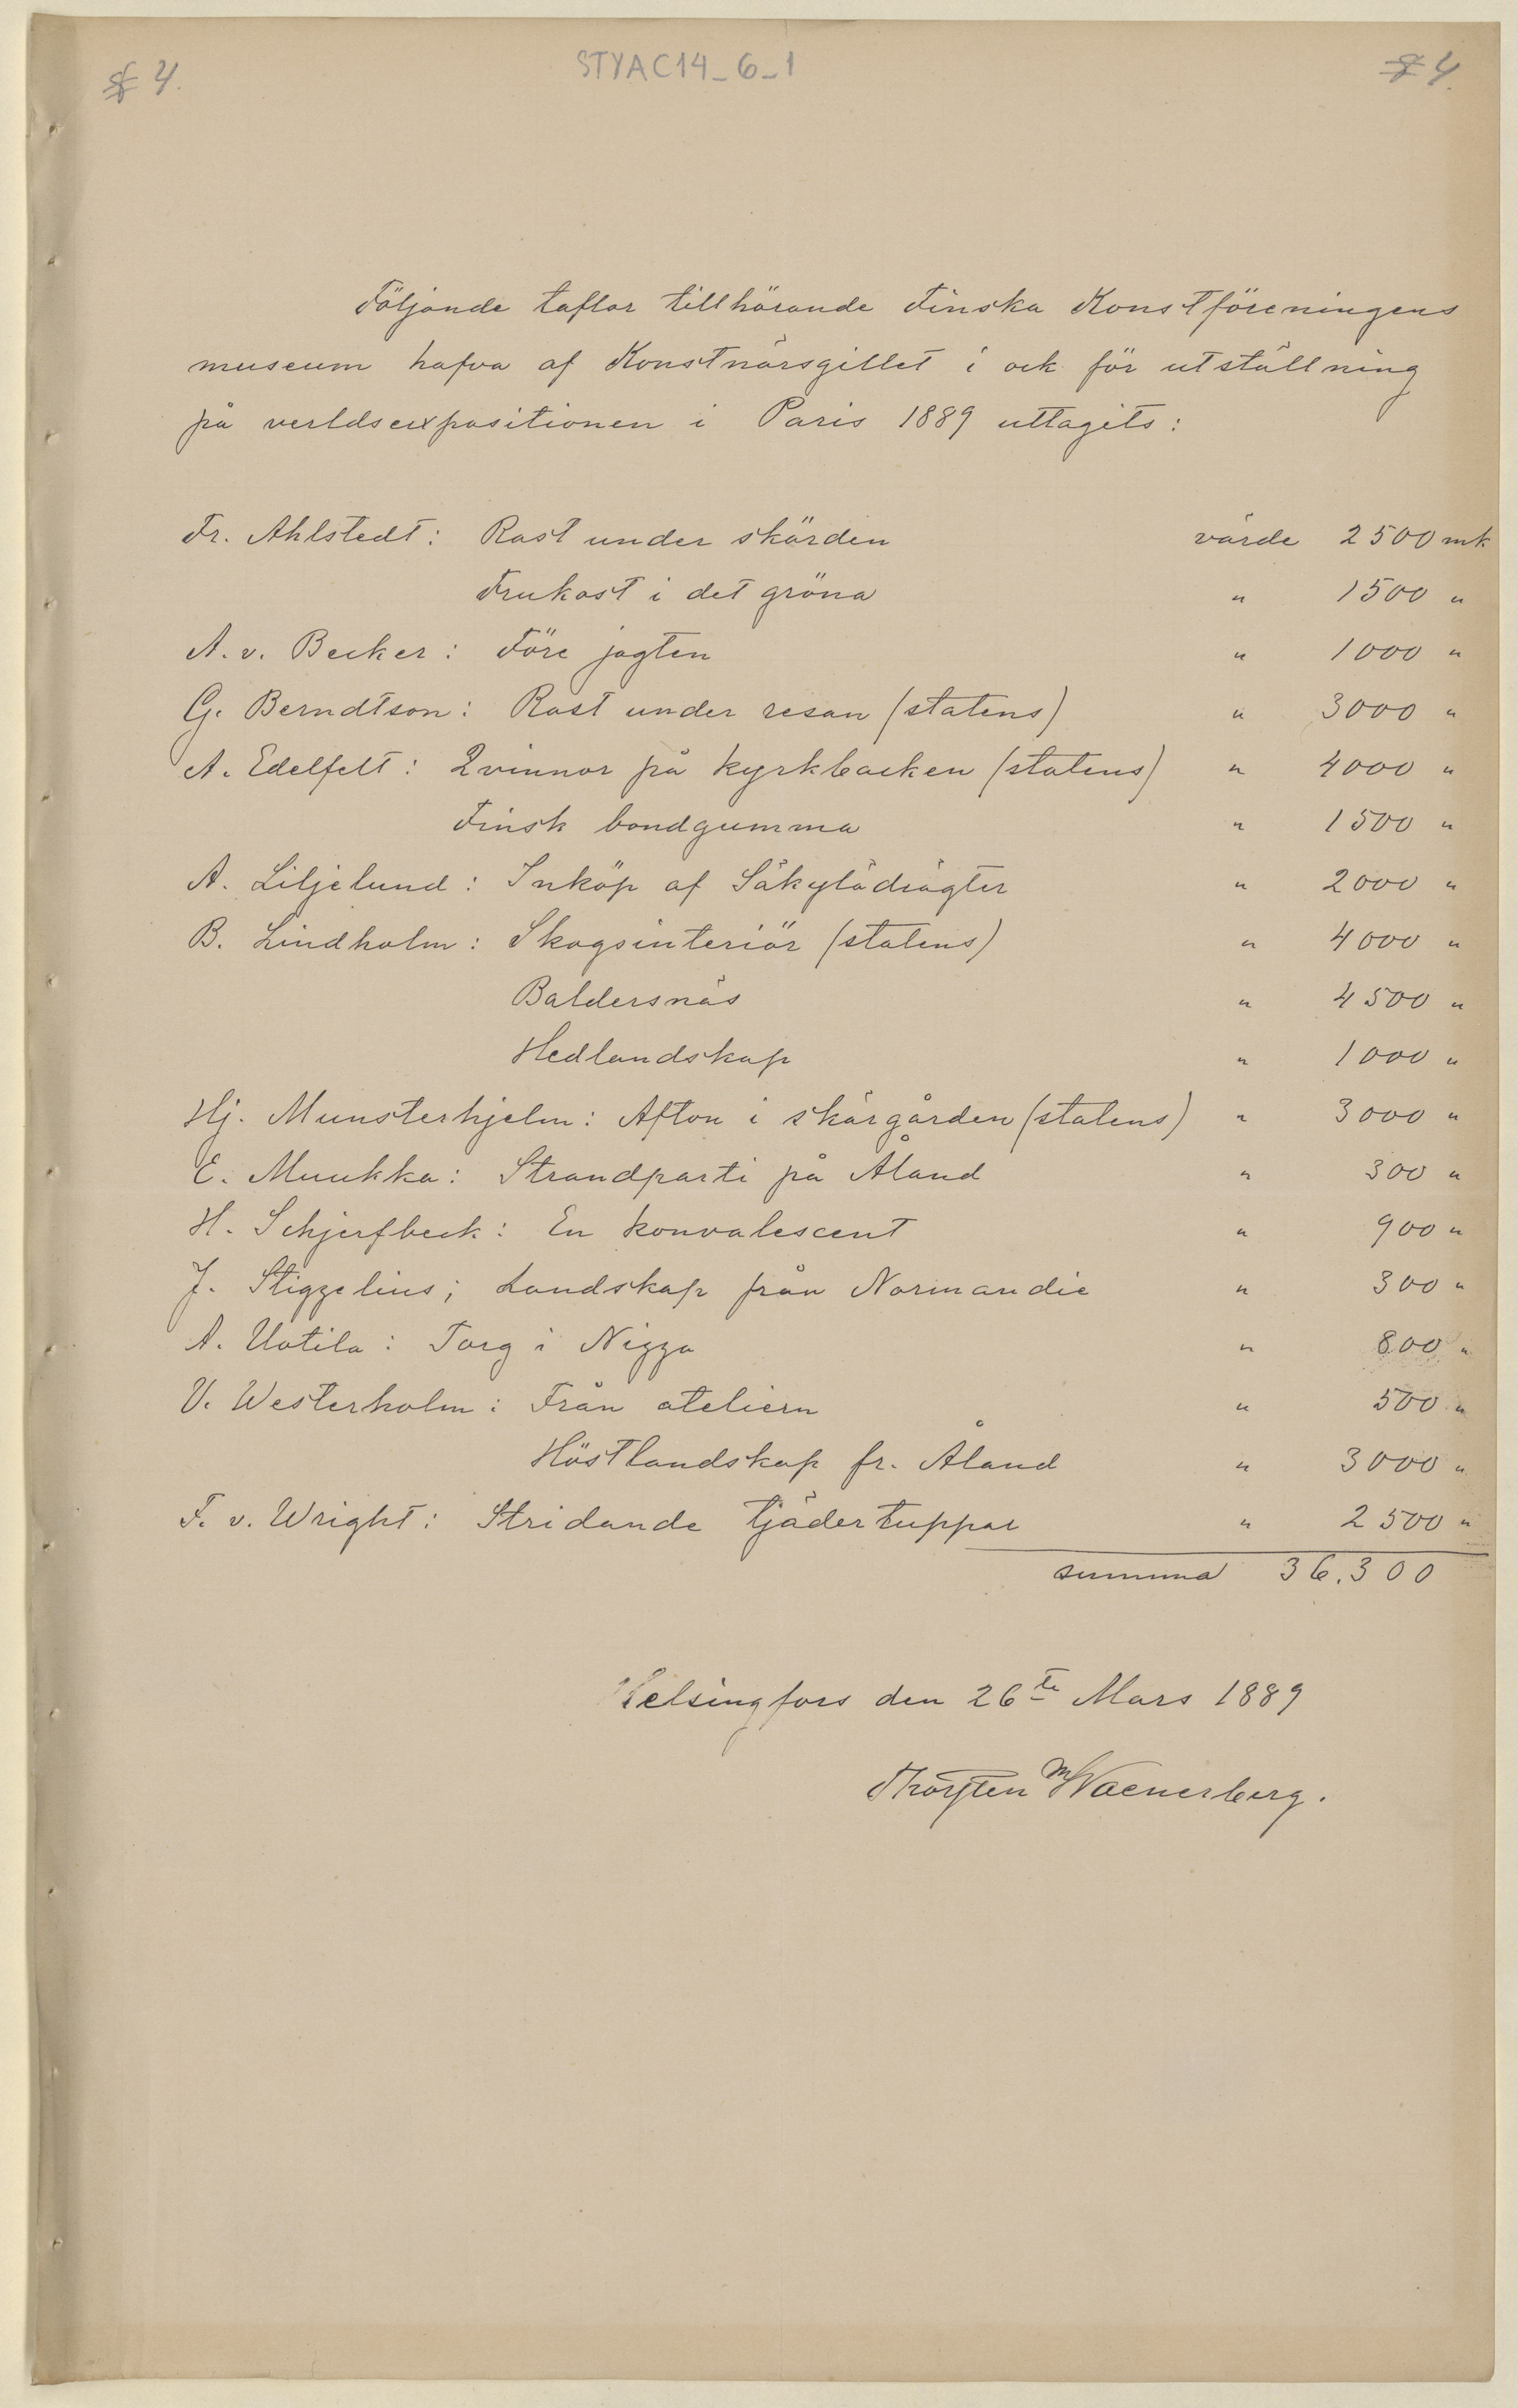 STYAC14_6_1
Följande taflor tillhörande Finska Konstföreningens
museum hafva af Konstnärsgillet i ock för utställning
på verldsexpositionen i Paris 1889 uttagits:
Fr. Ahlstedt: Rast under skörden värde 2500 mk
Frukost i det gröna " 1500 "
A. v. Becker: Före jagten " 1000 "
G. Berndtson: Rast under resan (statens) " 3000 "
A. Edelfelt: Qvinnor på kyrkbacken (statens) " 4000 "
Finsk bondgumma " 1500 "
A. Liljelund: Inköp af Säkylädrägter " 2000 "
B. Lindholm: Skogsinteriör (statens) " 4000 "
Baldersnäs " 4500 "
Hedlandskap " 1000 "
Hj. Munsterhjelm: Afton i skärgården (statens) " 3000 "
E. Muukka: Strandparti på Åland " 300 "
H. Schjerfbeck: En konvalescent " 900 "
J. Stigzelius; Landskap från Normandie " 300 "
A. Uotila: Torg i Nizza " 800 "
V. Westerholm: Från ateliern " 500 "
Höstlandskap fr. Åland " 3000 "
F. v. Wright: Stridande tjädertuppar " 2500 "
summa 36.300
Helsingfors den 26te Mars 1889
Thorsten Waenerberg.